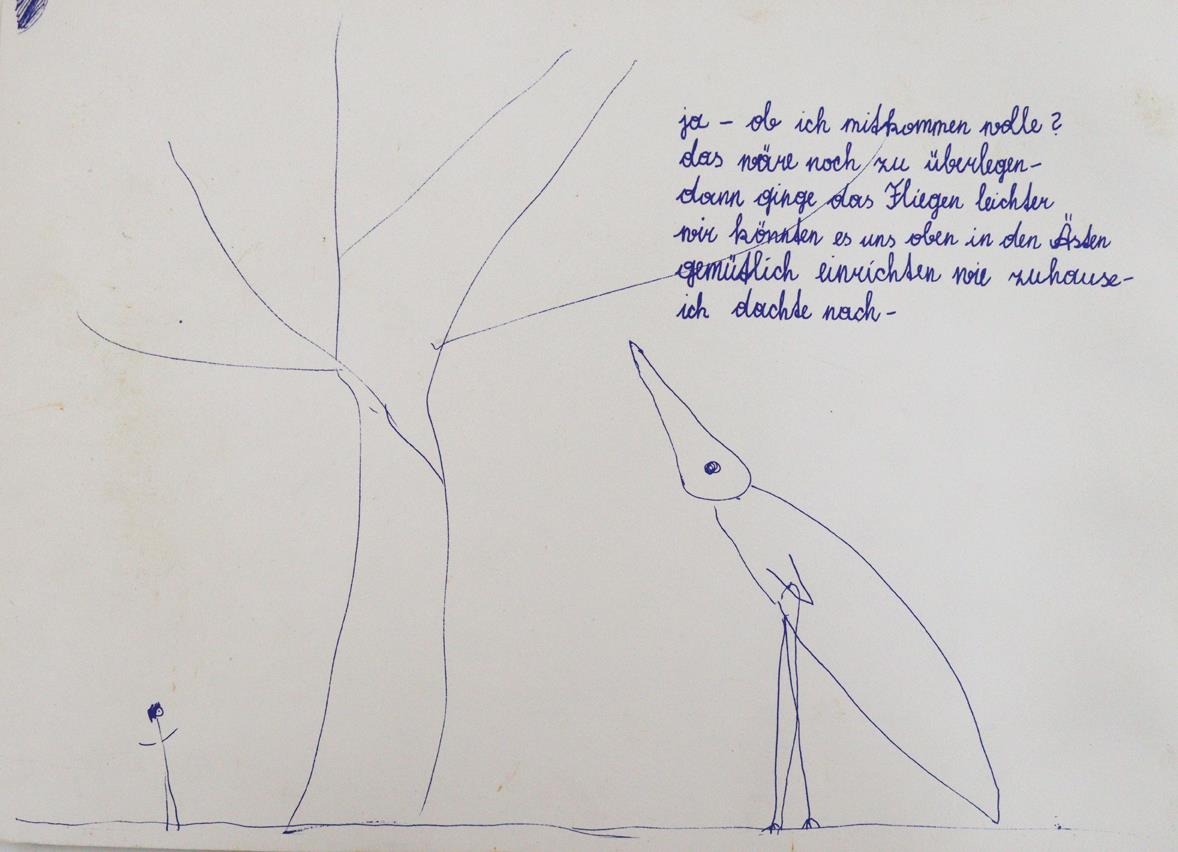 ja – ob ich mitkommen wolle?
das wäre noch zu überlegen –
dann ginge das Fliegen leichter
wir könnten es uns oben in den Ästen
gemütlich einrichten wie zuhause –
ich dachte nach –